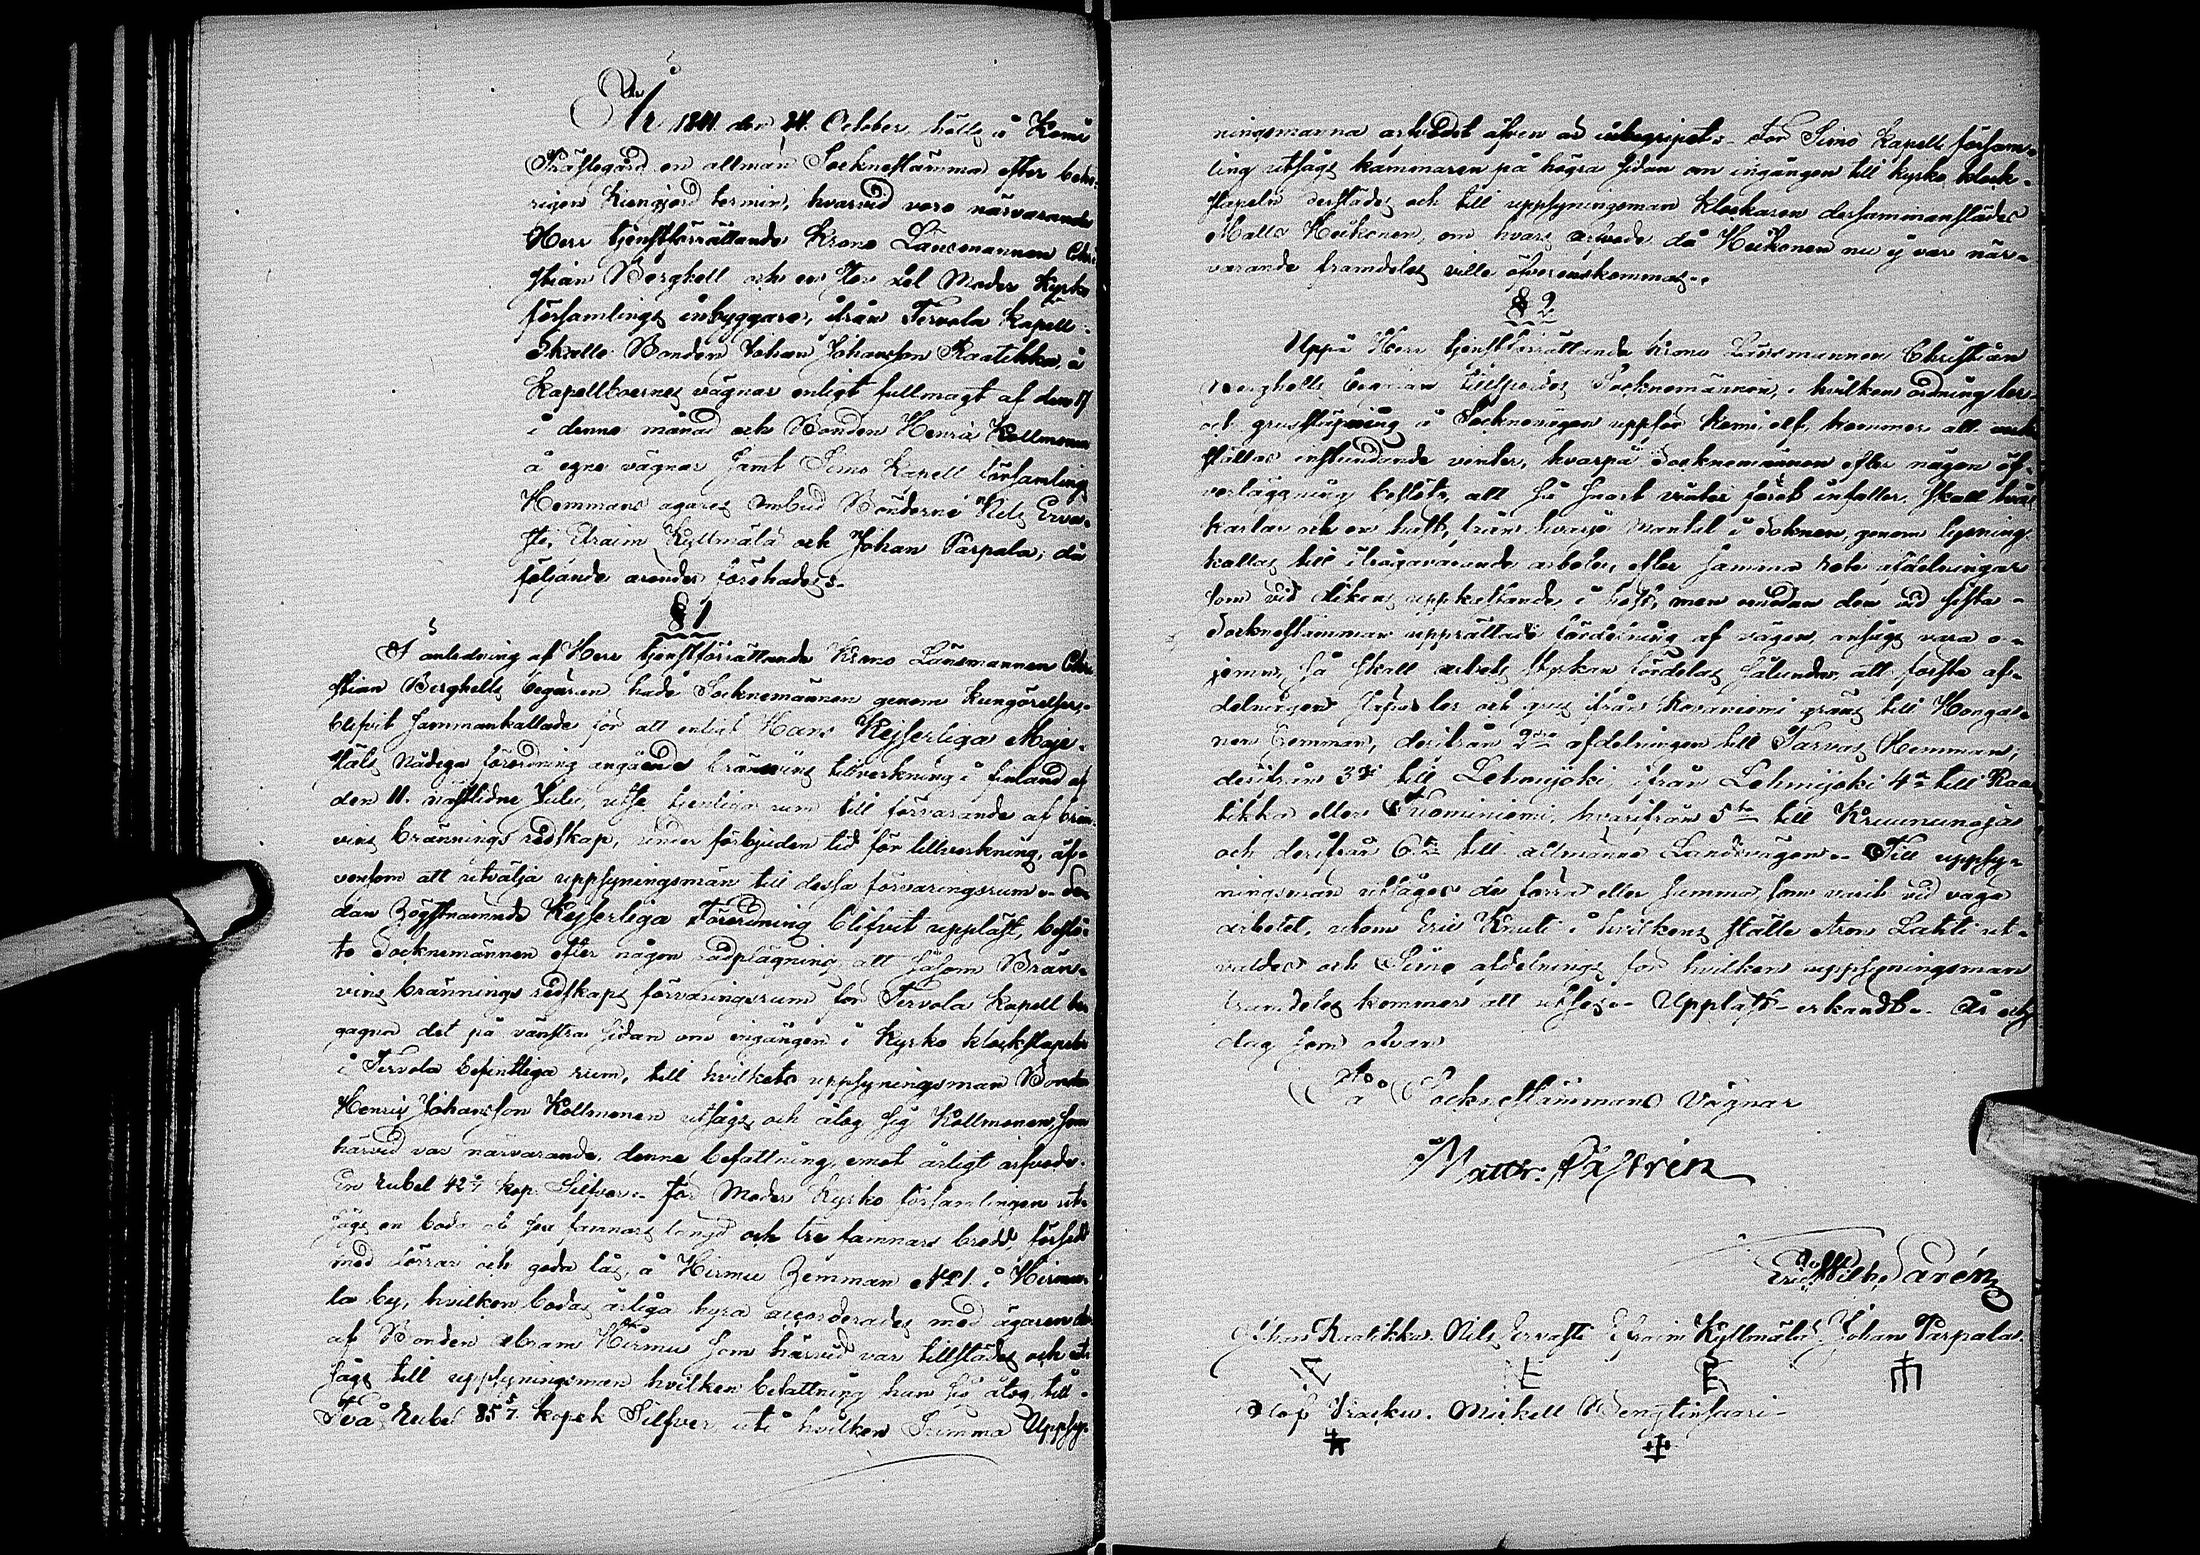 År 1841 den 24. October, hölls å Kemi
Prästegård en allmän Sockneståmma efter behö-
rigen kungjord termin, hvarvid voro närvarande
Herr tjenstförrättande Krono Länsmannen Chri
stian Berghell och en stor del Moder Kyrko
församlings inbyggare, ifrån Tervola Kapell
Skallo Bonden Johan Johansson Raatikka, å
Kapellboernes vägnar enligt fullmagt af den 17
i denne månad och Bonden Henric Kollmonen
å egne vägnar samt Simo Kapell församlings
Hemmans ägares ombud Bönderne Nils Erva-
sti, Efraim Kyllmälä och Johan Parpala; då
följande ärender förehades.
§ 1
I anledning af Herr tjenstförrättande Krono Länsmannen Chri
stian Berghells begäran hade Socknemännen genom kungörelser
blifvit sammankallade för att enligt Hans Kejserliga Maje-
stäts Nådiga förordning angående bränvins tillverkning i Finland af
den 11. nästlidne Julii, utse tjenliga rum till förvarande af brän
vins brännings redskap, under förbjuden tid för tillverkning, äf-
vensom att utvälja uppsyningsmän till dessa förvaringsrum. Se
dan Högstnämnde Kejserliga Förordning blifvit uppläst, beslö-
to Socknemännen efter någon rådplägning att såsom Brän-
vins brännings redskaps förvaringsrum för Tervola Kapell be
gagna det på vänstra sidan om ingången i Kyrko klockstapeln
i Tervola befintliga rum, till hvilkets uppsyningsman Bonden
Henric Johansson Kollmonen utsågs, och åtog sig Kollmonen, som
härvid var närvarande, denne befattning, emot årligt arfvode
En rubel 42 6/7 kop. Silfver. För Moder Kyrko församlingen ut-
sågs en boda af sex famnars längd och tre famnars bredd, försedd
med dörrar och goda lås, å Hirmu Hemman No 21 i Hirmu-
la by, hvilken bodas årliga hyra accorderades med ägaren der
af Bonden Abram Hirmu som härvid var tillstädes och ut
sågs till uppsyningsman hvilken befattning han sig åtog, till
Två Rubel 85 5/7 kopek Silfver, uti hvilken Summa Uppsy-
ningsmanna arfvodet äfven är inbegripet. För Simo Kapell försam-
ling utsågs kammaren på högra sidan om ingången till kyrko klock-
stapeln derstädes och till uppsyningsman klockaren dersammanstädes
Matts Heikonen, om hvars arfvode då Heikonen nu ej var när-
varande framdeles ville öfverenskommas.
§ 2
Uppå Herr tjenstförrättande Krono Länsmannen Christian
Berghells begäran tillspordes Socknemännen, i hvilken ordning ler
och grusfyllning å Socknevägen uppför Kemi elf, kommer att verk
ställas instundande vinter, hvarpå Socknemännen efter någon öf-
verläggning beslöto, att så snart vinter föret infaller, skall två
karlar och en häst, från hvarje mantal i Socknen, genom legning
kallas till ifrågavarande arbete, efter samma rote afdelningar
som vid dikens uppkastande i höst, men medan den vid sista
Socknestämman upprättade fördelning af vägen, ansågs vara o-
jemn, så skall arbets styrkan fördelas sålunda, att första af-
delningen förer ler och grus ifrån Rovaniemi gräns till Hongai-
nen Hemman, derifrån 2dra afdelningen till Parvas Hemman,
derifrån 3dje till Lehmijoki, ifrån Lehmijoki 4de till Raa
tikka eller Suominiemi, hvarifrån 5te till Kruununoja
och derifrån 6te till allmänna Landsvägen. Till uppsy-
ningsmän utsåges de förra eller samma, som varit vid väga
arbetet, utom Eric Knuti i hvilkens ställe Aron Lahti ut-
valdes och Simo afdelnings för hvilken uppsyningsman
framdeles kommer att utses. Uppläst erkändt. År och
dag som ofvan
På Socknestämmans vägnar
Matth: Castrén
Eric Wilh. Sarén
Johan Raatikka. Nils Ervasti Efraim Kyllmälä. Johan Parpala.
Olof Vracku. Mickell Wengtinsaari